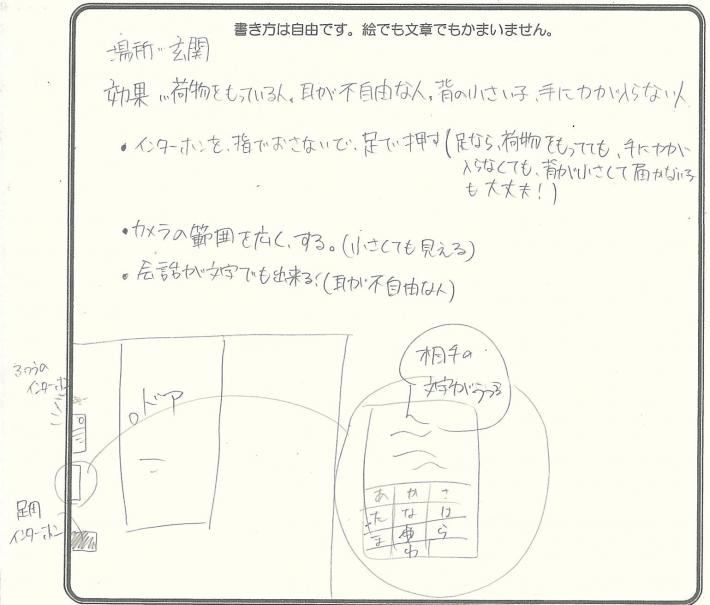 書き方は自由です。絵でも文章でもかまいません。
場所…玄関
効果…荷物をもっている人、耳が不自由な人、背の小さい子、手に力が入らない人
・インターホンを、指でおさないで、足で押す(足なら、荷物をもってても、手に力が
入らなくても、背が小さくて届かない子
も大丈夫!)
・カメラの範囲を広く、する。(小さくても見える)
・会話が文字でも出来る!(耳が不自由な人)
相手の
文字がうつる
ふつうの
インターホン
ドア
足用
インターホン
あ か さ
た な は
ま や ら
わ